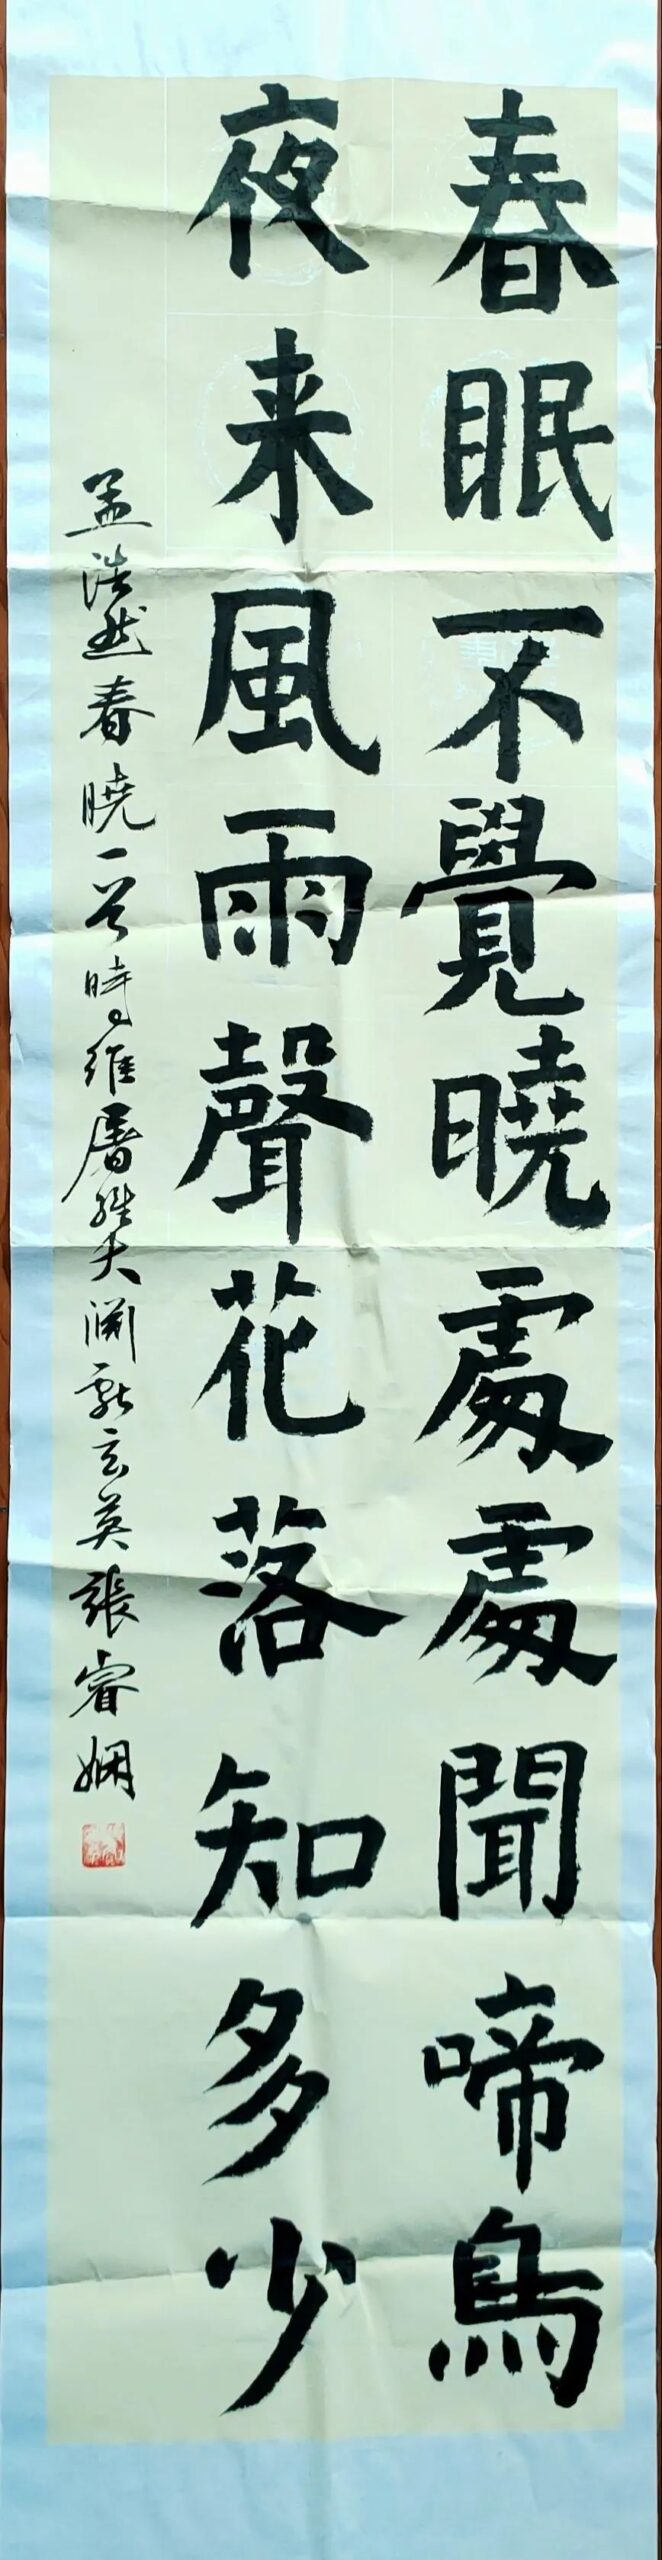 春眠不覺曉處處聞啼鳥
夜来風雨聲花落知多少
孟浩然春曉一首時維屠維大淵獻玄英張睿嫻